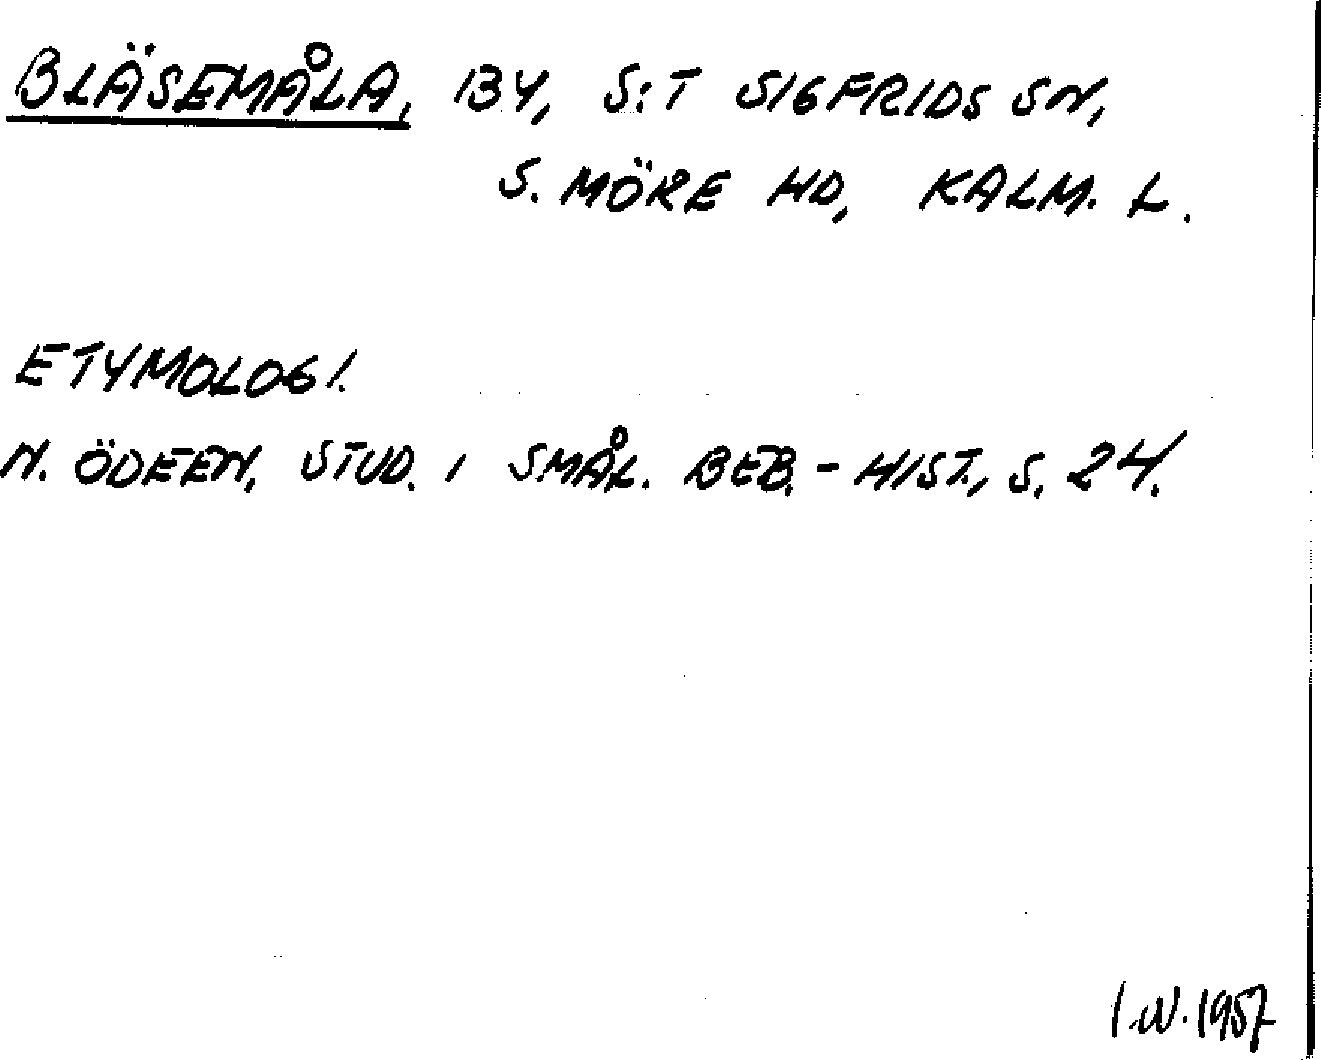 BLÄSEMÅLA, BY, S:T SIGFRIDS SN,
S. MÖRE HD, KALM. L.
ETYMOLOGI.
N. ÖDEEN, STUD. I SMÅL. BEB.-HIST., S. 24.
I.W. 1957